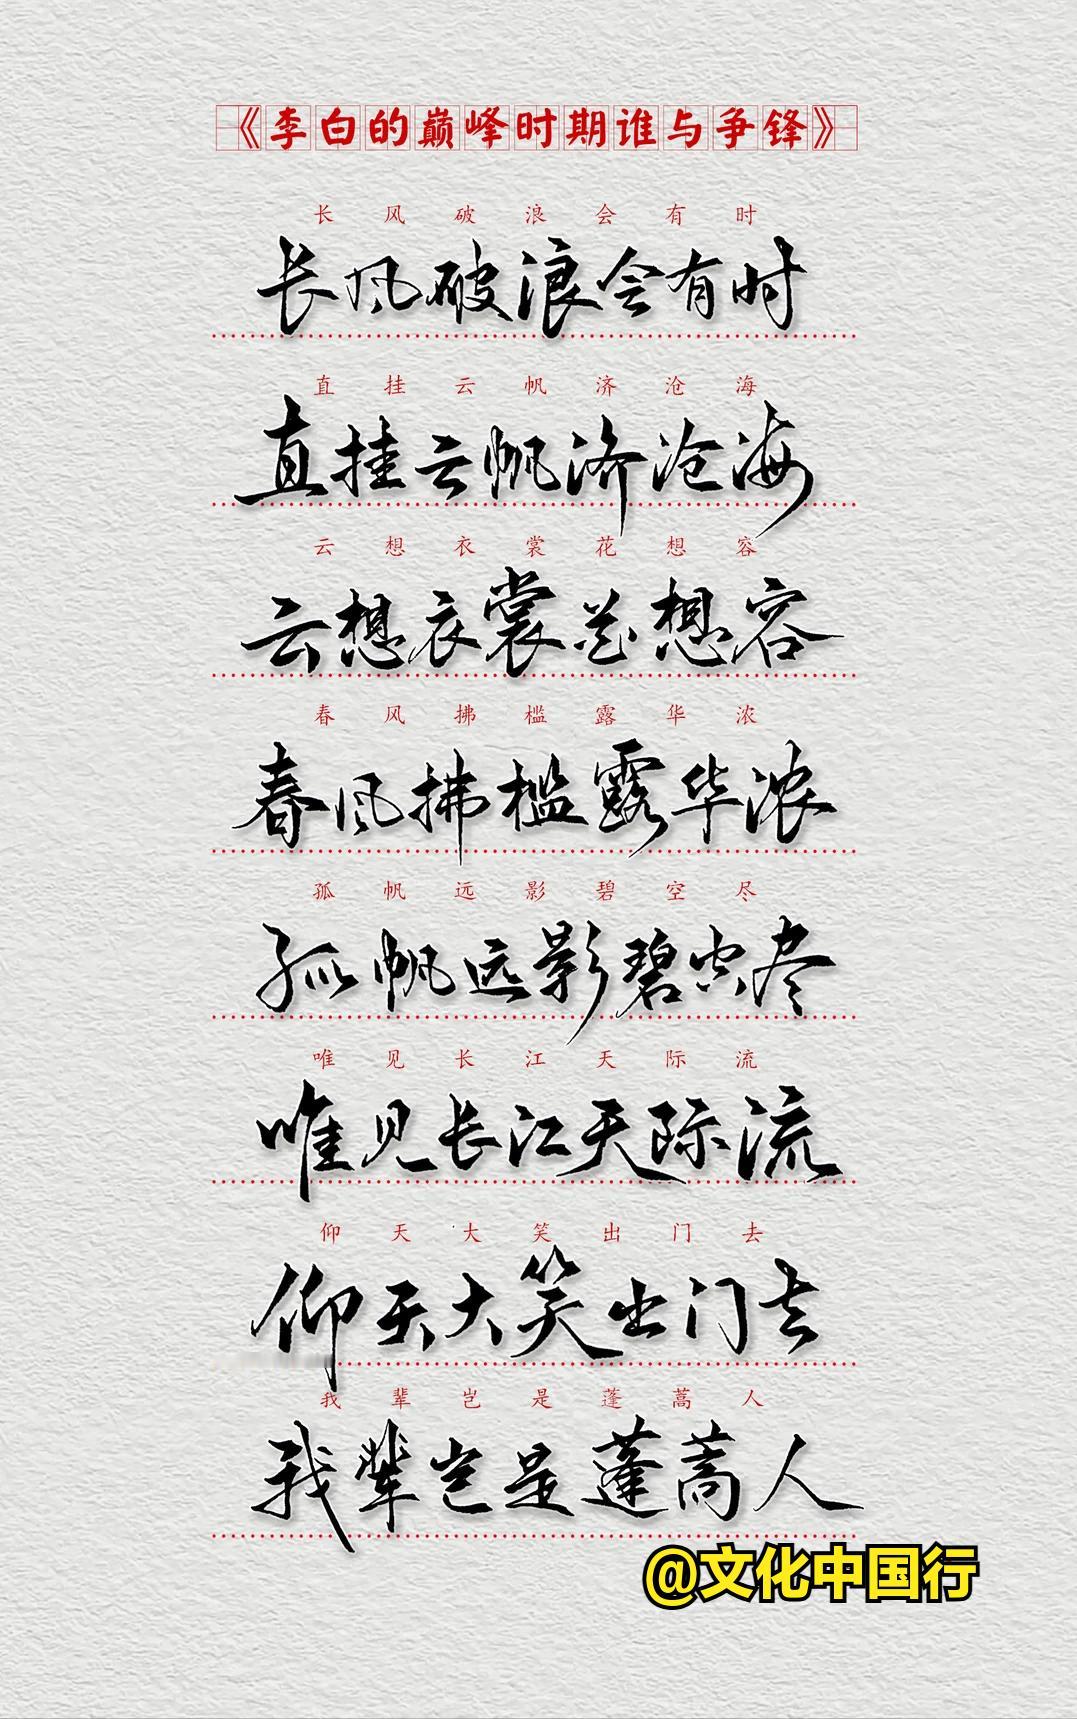 《李白的巅峰时期谁与争锋》
长风破浪会有时
长风破浪会有时
直挂云帆济沧海
直挂云帆济沧海
云想衣裳花想容
云想衣裳花想容
春风拂槛露华浓
春风拂槛露华浓
孤帆远影碧空尽
孤帆远影碧空尽
唯见长江天际流
唯见长江天际流
仰天大笑出门去
仰天大笑出门去
我辈岂是蓬蒿人
我辈岂是蓬蒿人
@文化中国行